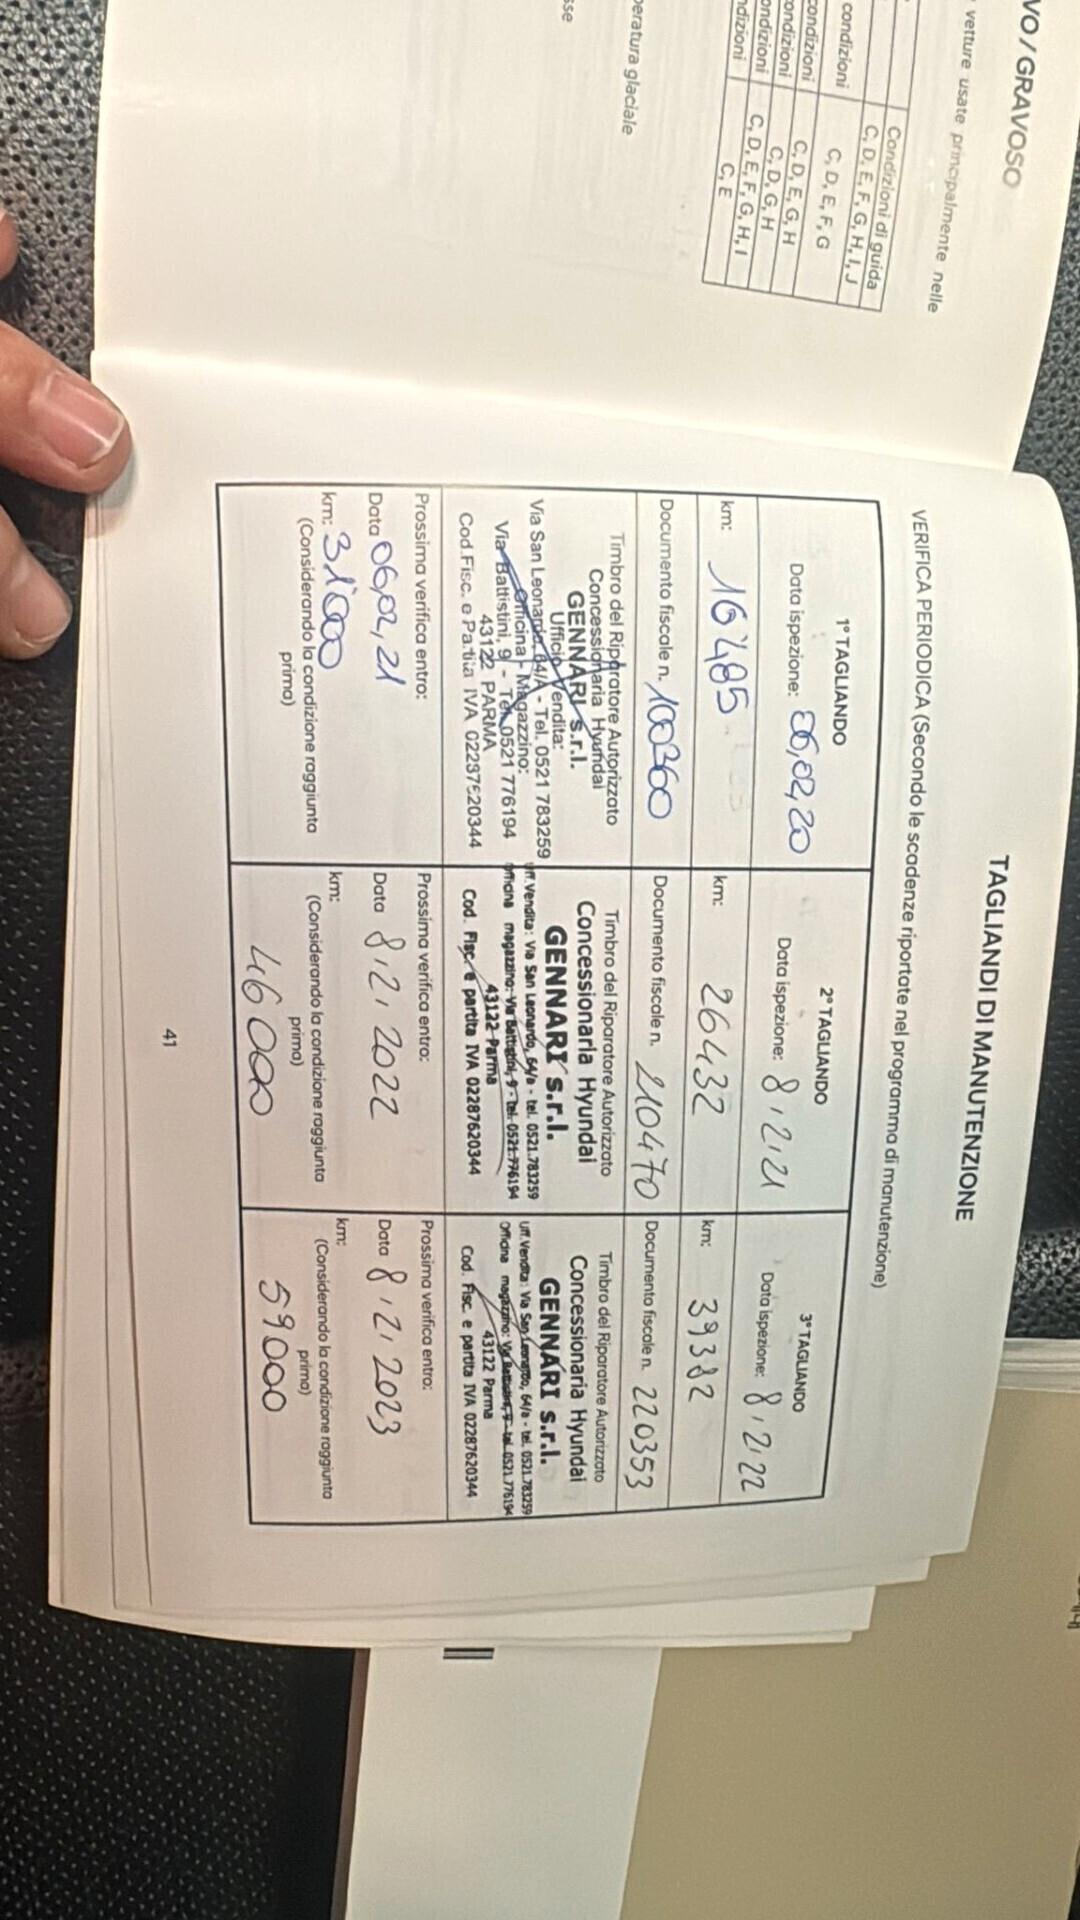 VO / GRAVOSO
vetture usate principalmente nelle
Condizioni di guida
C, D, E, F, G, H, I, J
condizioni C, D, E, F, G
condizioni C, D, E, G, H
ondizioni C, D, G, H
ondizioni C, D, E, F, G, H, I
ndizioni C, E
peratura glaciale
sse
TAGLIANDI DI MANUTENZIONE
VERIFICA PERIODICA (Secondo le scadenze riportate nel programma di manutenzione)
1° TAGLIANDO
Data ispezione: 06,02,20
km: 16485
Documento fiscale n. 100360
Timbro del Riparatore Autorizzato
Concessionaria Hyundai
GENNARI s.r.l.
Ufficio Vendita:
Via San Leonardo, 64/A - Tel. 0521 783259
Officina - Magazzino:
Via Battistini, 9 - Tel. 0521 776194
43122 PARMA
Cod.Fisc. e Partita IVA
Prossima verifica entro:
Data 06,02,21
km: 31'000
(Considerando la condizione raggiunta
prima)
2° TAGLIANDO
Data ispezione: 8,2,21
km: 26432
Documento fiscale n. 210470
Timbro del Riparatore Autorizzato
Concessionaria Hyundai
GENNARI s.r.l.
uff.Vendita: Via San Leonardo, 64/a - tel. 0521.783259
officina magazzino: Via Battistini, 9 - tel. 0521.776194
43122 Parma
Cod. Fisc. e partita IVA 02287620344
Prossima verifica entro:
Data 8,2,2022
km:
(Considerando la condizione raggiunta
prima)
46000
3° TAGLIANDO
Data ispezione: 8,2,22
km: 39382
Documento fiscale n. 220353
Timbro del Riparatore Autorizzato
Concessionaria Hyundai
GENNARI s.r.l.
uff.Vendita: Via San Leonardo, 64/a - tel. 0521.783259
officina magazzino: Via Battistini, 9 - tel. 0521.776194
43122 Parma
Cod. Fisc. e partita IVA 02287620344
Prossima verifica entro:
Data 8,2,2023
km:
(Considerando la condizione raggiunta
prima)
59000
41